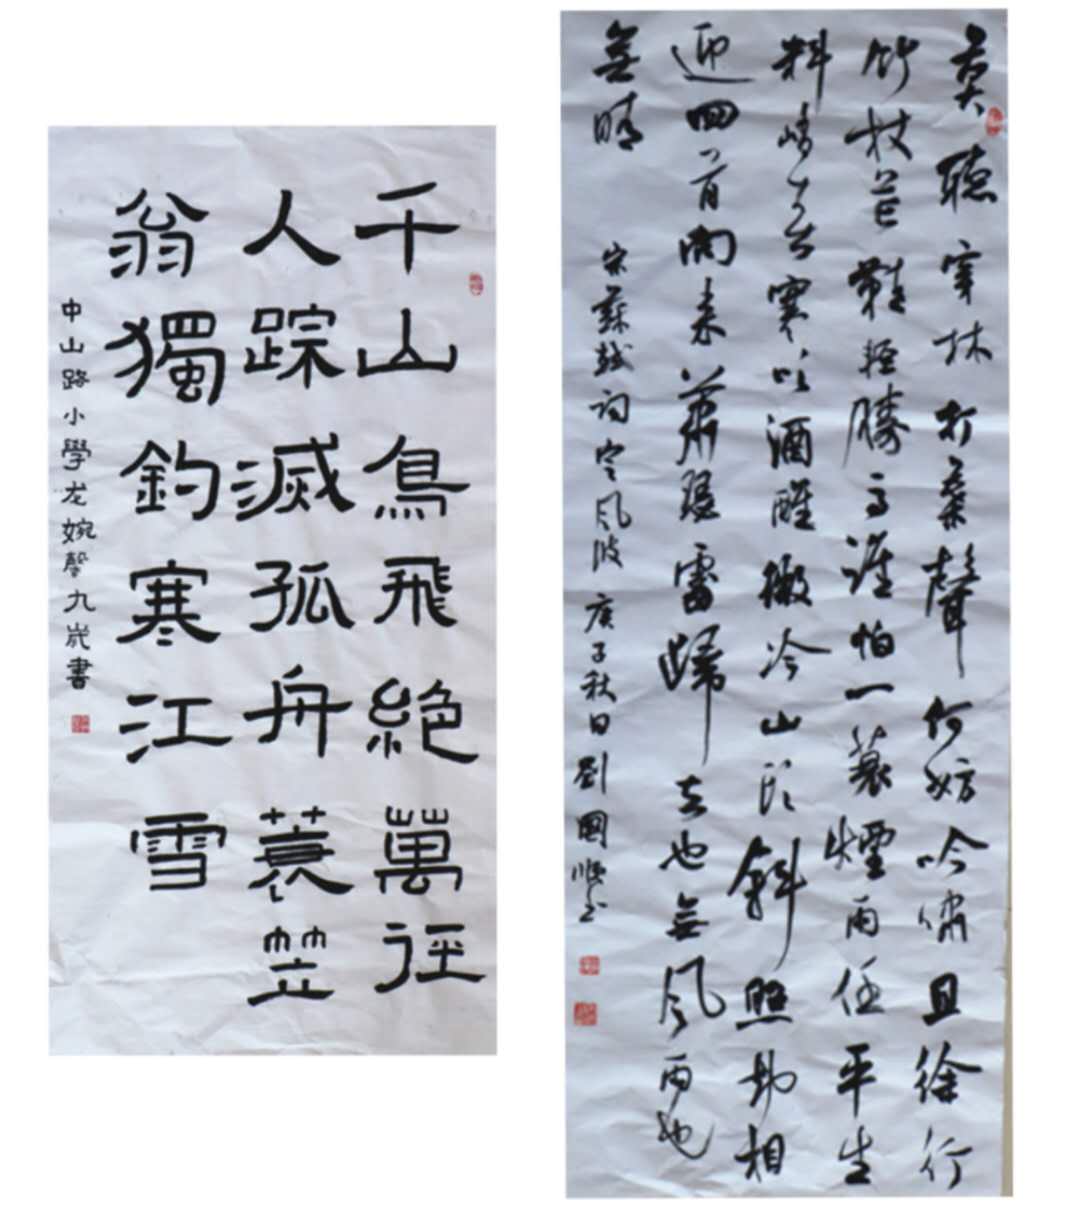 千山鳥飛絕萬徑
人踪滅孤舟蓑笠
翁獨釣寒江雪
中山路小學龙婉馨九歲書
莫聽穿林打葉聲何妨吟嘯且徐行
竹杖芒鞋輕勝馬誰怕一蓑煙雨任平生
料峭春寒吹酒醒微冷山头斜照却相
迎回首向来蕭瑟處歸去也無風雨也
無晴
宋蘇軾词定風波 庚子秋日劉國順书